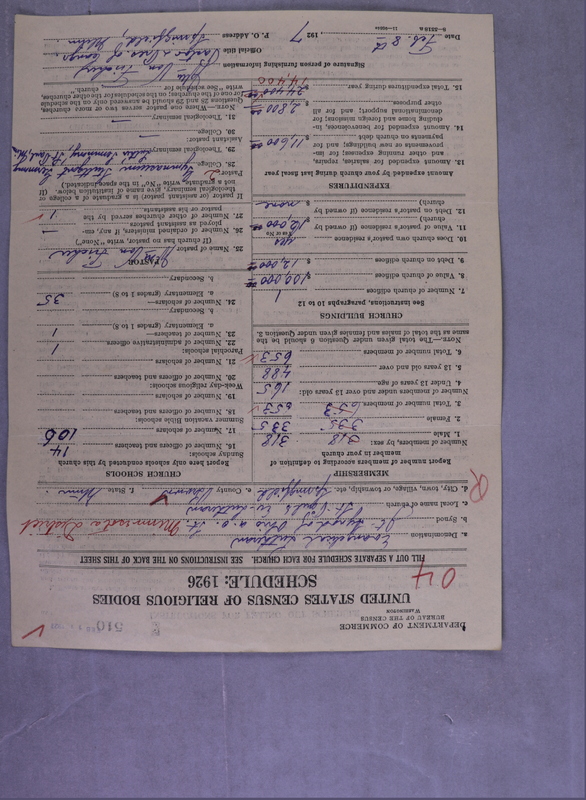 510
DEPARTMENT OF COMMERCE
BUREAU OF THE CENSUS
WASHINGTON
UNITED STATES CENSUS OF RELIGIOUS BODIES
SCHEDULE: 1926
04
FILL OUT A SEPARATE SCHEDULE FOR EACH CHURCH. SEE INSTRUCTIONS ON THE BACK OF THIS SHEET
a. Denomination Evangelical Lutheran
b. Synod Jt. Synod of Ohio a. o. St. Minnesota District
c. Local name of church St. Paul's Ev. Lutheran
d. City, town, village, or township, etc. Springfield e. County Brown f. State Minn.
MEMBERSHIP
Report number of members according to definition of member in your church
Number of members, by sex:
1. Male 318 318
2. Female 335 335
3. Total number of members 653 653
Number of members under and over 13 years old:
4. Under 13 years of age 165
5. 13 years old and over 488
6. Total number of members 653
NOTE.—The total given under Question 6 should be the same as the total of males and females given under Question 3.
CHURCH BUILDINGS
See instructions, paragraphs 10 to 12
7. Number of church edifices 1
8. Value of church edifices $100,000
9. Debt on church edifices $12,000
10. Does church own pastor's residence yes
(Yes or No)
11. Value of pastor's residence (if owned by church) $12,000
12. Debt on pastor's residence (if owned by church) $ none
EXPENDITURES
Amount expended by your church during last year
13. Amount expended for salaries, repairs, and other running expenses; for improvements or new building; and for payments on church debt $11,600
14. Amount expended for benevolences, including home and foreign missions; for denominational support; and for all other purposes $2,800
15. Total expenditures during year $ 14,400
CHURCH SCHOOLS
Report here only schools conducted by this church
Sunday schools:
16. Number of officers and teachers 14
17. Number of scholars 106
Summer vacation Bible schools:
18. Number of officers and teachers
19. Number of scholars
Week-day religious schools:
20. Number of officers and teachers
21. Number of scholars
Parochial schools:
22. Number of administrative officers 1
23. Number of teachers—
a. Elementary (grades 1 to 8) 1
b. Secondary
24. Number of scholars—
a. Elementary (grades 1 to 8) 35
b. Secondary
PASTOR
25. Name of pastor
(If church has no pastor, write "None")
26. Number of ordained ministers, if any, employed as assistant pastors —
27. Number of other churches served by the pastor or his assistants 1
If pastor (or assistant pastor) is a graduate of a college or theological seminary, give name of institution below. (If not a graduate, write "No" in the space indicated.)
Pastor:
28. College Gymnasium Stuttgart Germany
29. Theological seminary Luther Seminary St. Paul, Minn
Assistant pastor:
30. College —
31. Theological seminary —
NOTE.—Where one pastor serves two or more churches, Questions 28 and 29 should be answered only on the schedule for one of the churches; on the schedules for the other churches, write "See schedule for"
Signature of person furnishing information
Official title Pastor
P. O. Address Springfield, Minn.
Date Feb. 8th 1927